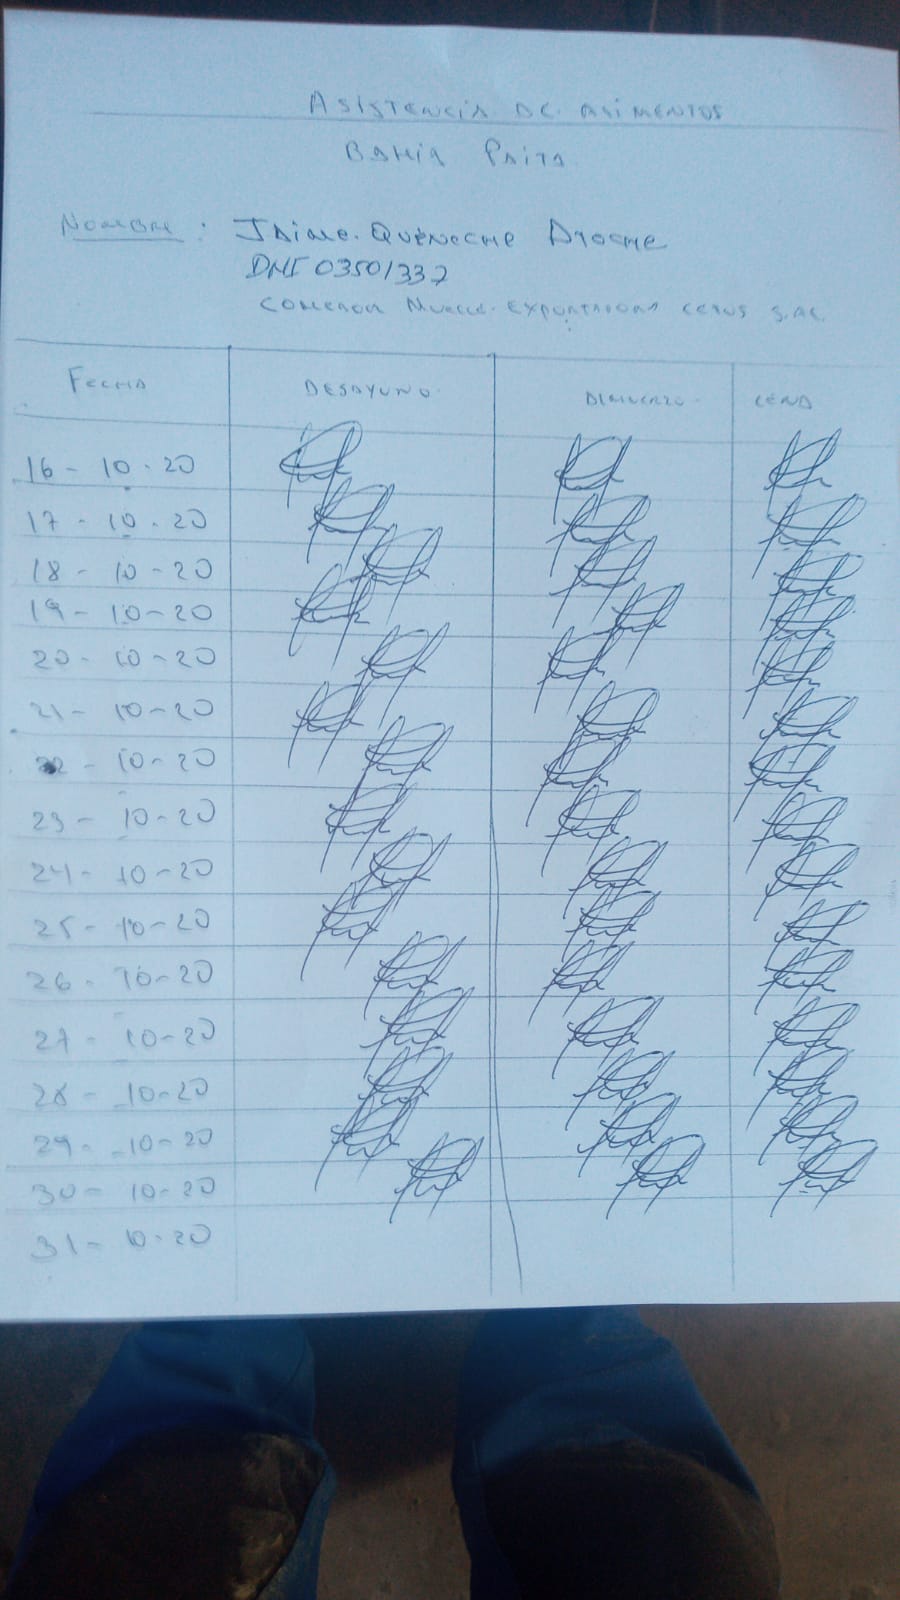 ASISTENCIA DE ALIMENTOS
BAHIA PAITA
NOMBRE : JAIME QUENECHE
DNI 03501337
COMEDOR MUELLE EXPORTADORA CETUS S.AC.
FECHA DESAYUNO ALMUERZO CENA
16 - 10 - 20
17 - 10 - 20
18 - 10 - 20
19 - 10 - 20
20 - 10 - 20
21 - 10 - 20
22 - 10 - 20
23 - 10 - 20
24 - 10 - 20
25 - 10 - 20
26 - 10 - 20
27 - 10 - 20
28 - 10 - 20
29 - 10 - 20
30 - 10 - 20
31 - 10 - 20